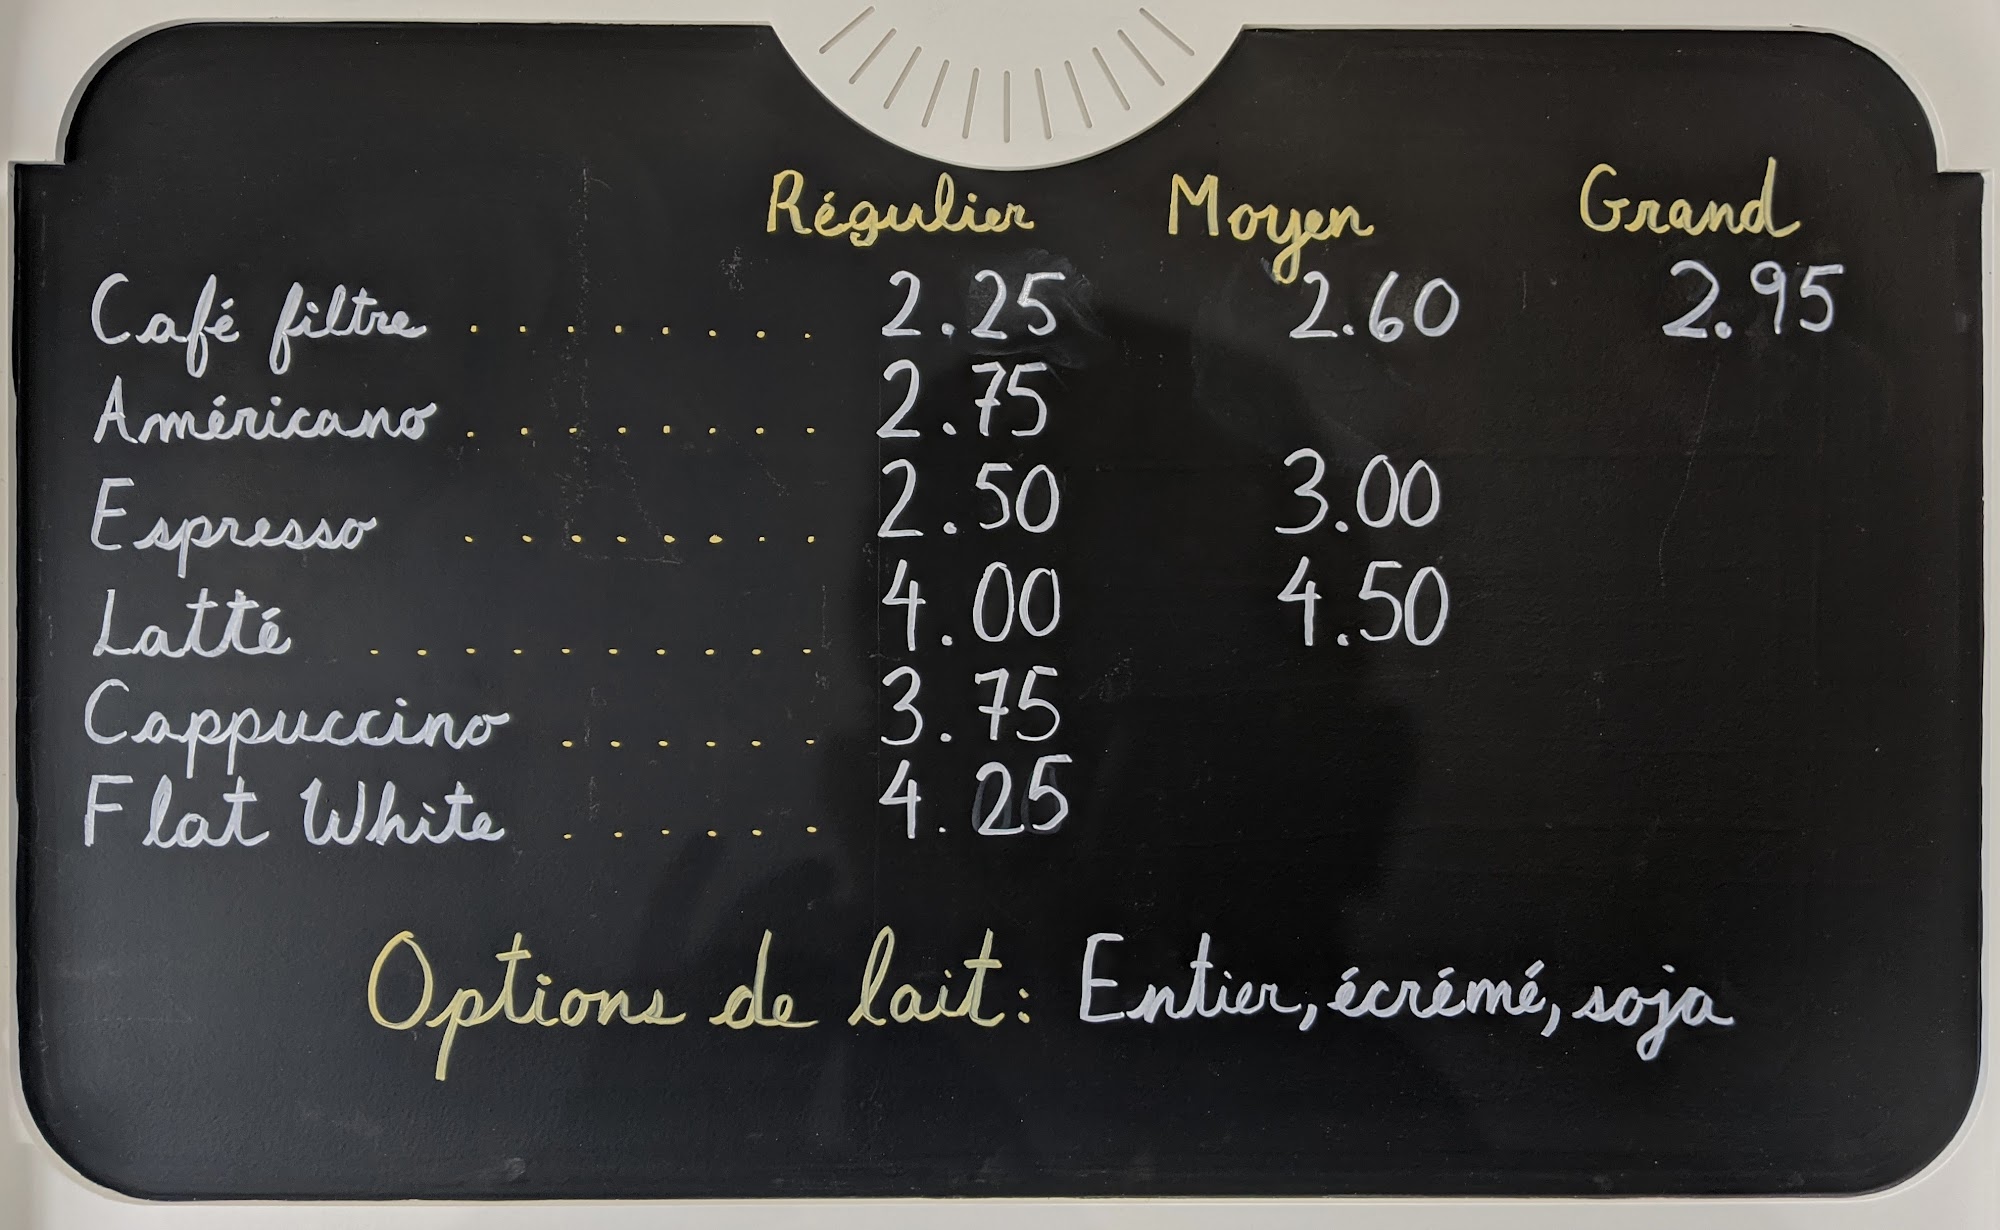 Régulier Moyen Grand
Café filtre ........ 2.25 2.60 2.95
Américano ........ 2.75
Espresso ........ 2.50 3.00
Latté .......... 4.00 4.50
Cappuccino ...... 3.75
Flat White ...... 4.25
Options de lait: Entier, écrémé, soja